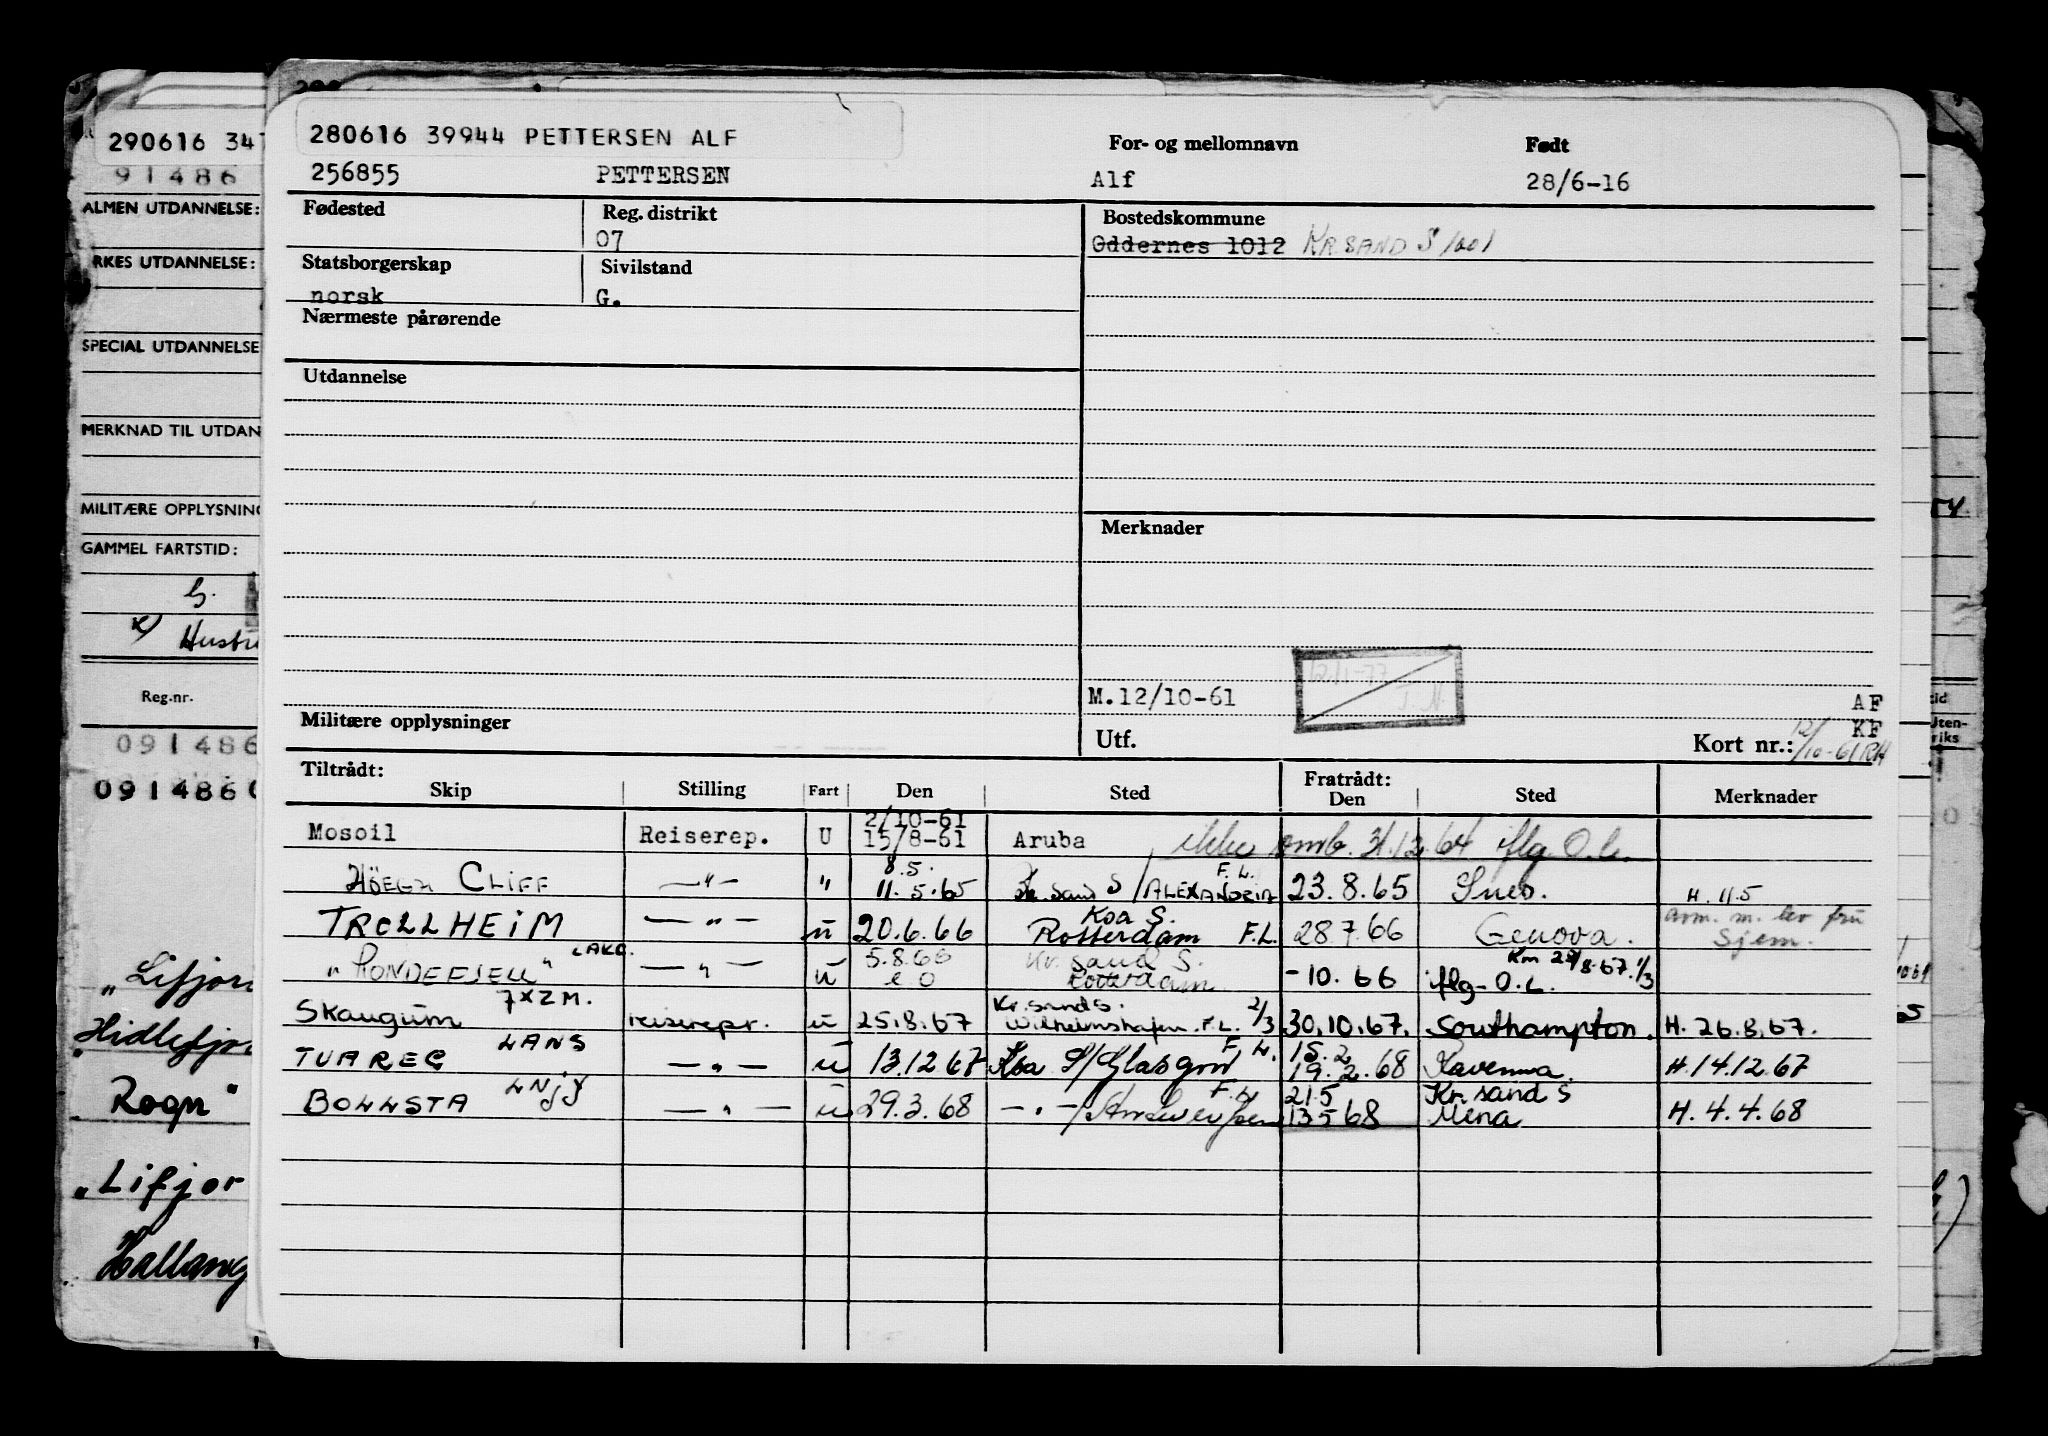 280616 39944 PETTERSEN ALF
256855 PETTERSEN
For- og mellomnavn
Alf
Født
28/6-16
Fødested
Reg. distrikt
07
Bostedskommune
Oddernes 1012 KR.SAND S 1001
Statsborgerskap
norsk
Sivilstand
G.
Nærmeste pårørende
Utdannelse
Merknader
M.12/10-61
12/1-77
J.N.
AF
KF
Militære opplysninger
Utf.
Kort nr.: 12/10-61 RH
Tiltrådt:
Fratrådt:
Skip Stilling Fart Den Sted Den Sted Merknader
2/10-61
Mosoil Reiserep. U 15/8-61 Aruba ikke 31.12.64 iflg. O.L.
8.5. F.L.
HÖEGH CLIFF —"— " 11.5.65 Kr. Sand S/ALEXANDRIA 23.8.65 Sues. H. 11.5
Ksa S.
TROLLHEIM —"— u 20.6.66 Rotterdam F.L. 28.7.66 Genova. m. fru
Sjem.
LAKC. 5.8.66 Kr. sand S.
"RONDEFJELL" —"— u Rotterdam -10.66 iflg. O.L. 1/3
7XZM. Kr.sand S. 2/3
Skaugum reiserepr. u 25.8.67 Wilhelmshafen. F.L. 30.10.67. Southampton. H. 26.8.67.
LANS F.L. 15.2
TUAREG —"— u 13.12.67 Ksa S/Glasgow 19.2.68 Ravenna. H. 14.12.67
LNJY F.L. 21.5 Kr.sand S
BOLLSTA —"— u 29.3.68 —"—/Antwerpen 13.5.68 Mena H. 4.4.68
290616 347
91486
ALMEN UTDANNELSE:
RKES UTDANNELSE:
SPECIAL UTDANNELSE
MERKNAD TIL UTDAN
MILITÆRE OPPLYSNING
GAMMEL FARTSTID:
G.
x) Hustru
Reg.nr.
091486
091486
"Lifjor
Hidlefjor
"Rogn"
"Lifjor
Hallang
tid
Uten-
riks